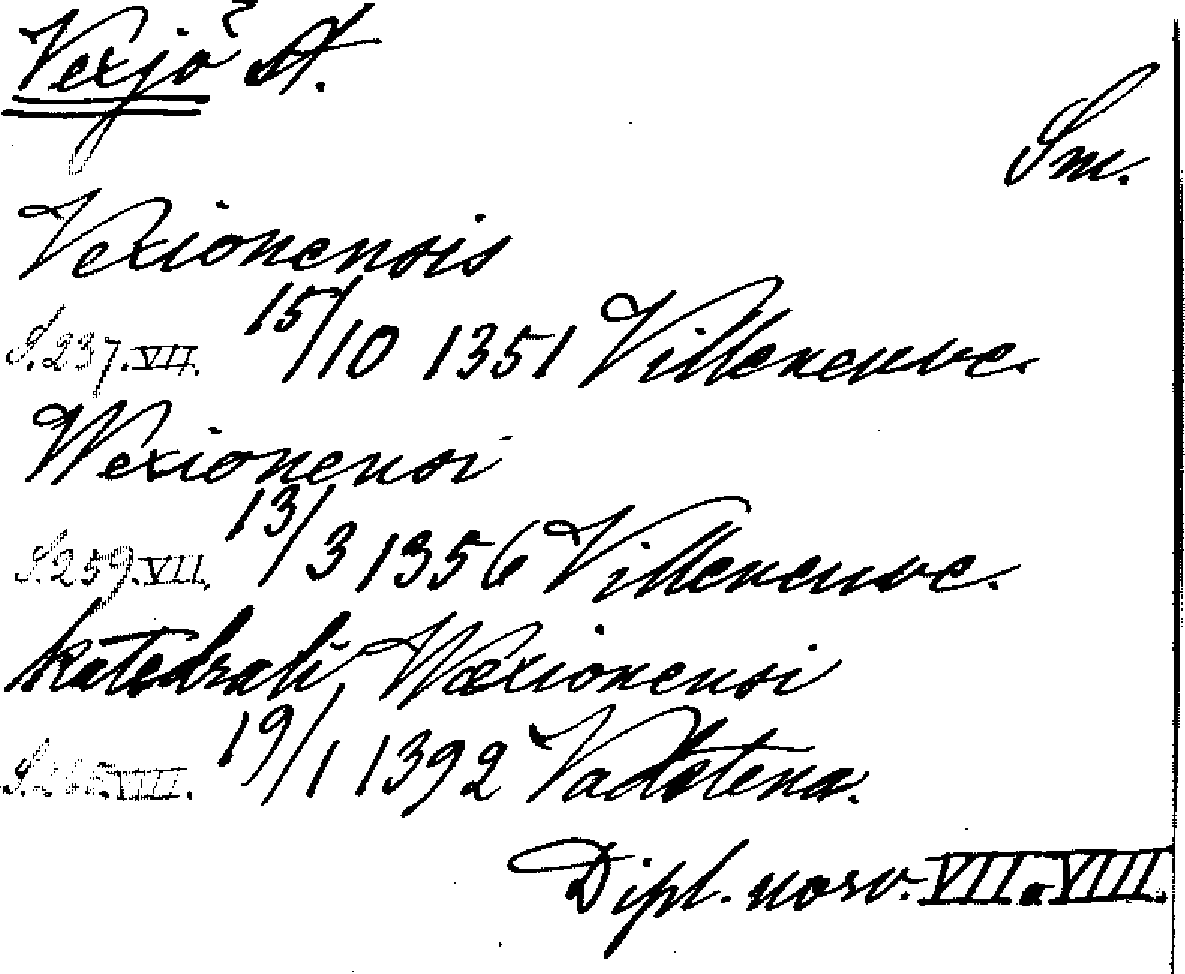 Vexjö St.
Sm.
Vexionensis
S. 237. VII. 15/10 1351 Villeneuve.
Wexionensi
S. 259. VII. 13/3 1356 Villeneuve.
katedrali Wexionensi
19/1 1392 Vadstena.
Dipl. norv. VII. o VIII.